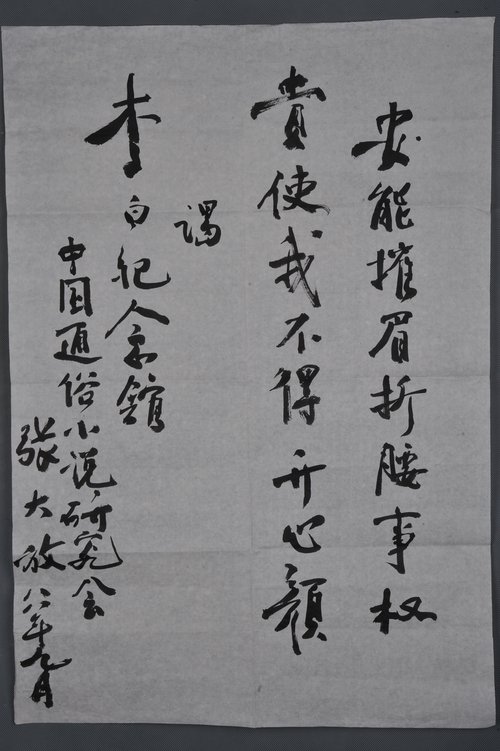 安能摧眉折腰事权
贵使我不得开心颜
谒
李白纪念馆
中国通俗小说研究会
张大放 八八年九月